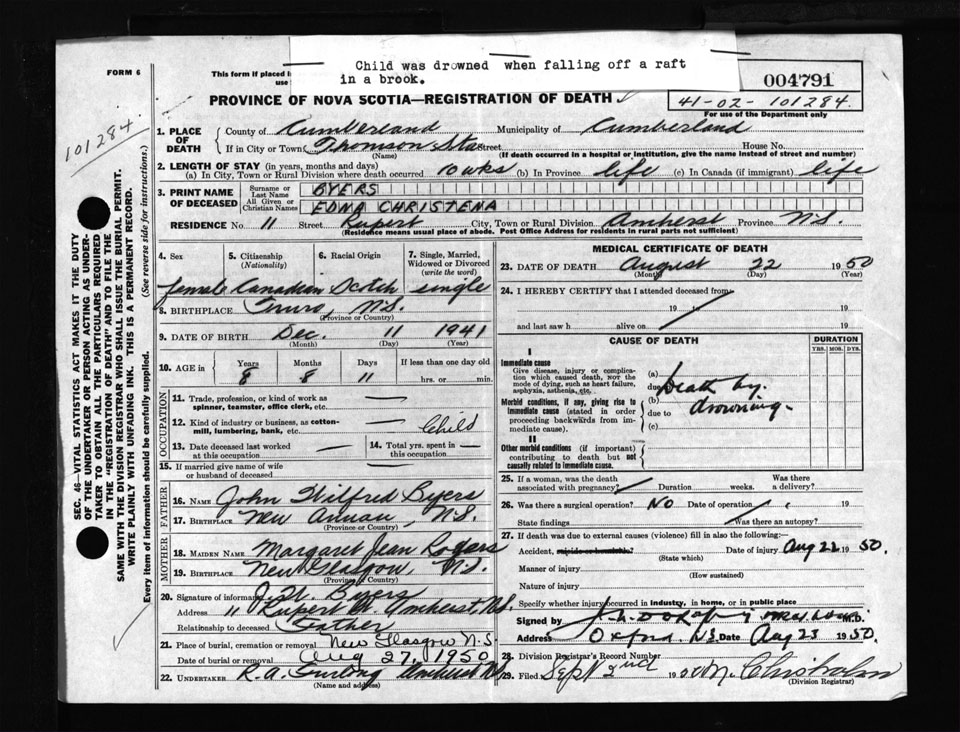 Child was drowned when falling off a raft
in a brook.
FORM 6
This form if placed i
use
004791
PROVINCE OF NOVA SCOTIA—REGISTRATION OF DEATH
41-02-101284.
For use of the Department only
101284.
1. PLACE OF DEATH
County of Cumberland Municipality of Cumberland
If in City or Town Thomson Sta Street House No.
(Name) (If death occurred in a hospital or institution, give the name instead of street and number)
2. LENGTH OF STAY (in years, months and days)
(a) In City, Town or Rural Division where death occurred 10 wks (b) In Province life (c) In Canada (if immigrant) life
3. PRINT NAME OF DECEASED
Surname or Last Name BYERS
All Given or Christian Names EDNA CHRISTENA
RESIDENCE No 11 Street Rupert City, Town or Rural Division Amherst Province N.S.
(Residence means usual place of abode. Post Office Address for residents in rural parts not sufficient)
4. Sex 5. Citizenship (Nationality) 6. Racial Origin 7. Single, Married, Widowed or Divorced (write the word)
female Canadian Scotch single
8. BIRTHPLACE Truro, N.S.
(Province or Country)
9. DATE OF BIRTH Dec. 11 1941
(Month) (Day) (Year)
10. AGE in Years Months Days If less than one day old
8 8 11 hrs. or min.
OCCUPATION
11. Trade, profession, or kind of work as
spinner, teamster, office clerk, etc.
12. Kind of industry or business, as cotton-
mill, lumbering, bank, etc. Child
13. Date deceased last worked
at this occupation
14. Total yrs. spent in
this occupation
15. If married give name of wife
or husband of deceased
FATHER
16. NAME John Wilfred Byers
17. BIRTHPLACE New Annan, N.S.
(Province or Country)
MOTHER
18. MAIDEN NAME Margaret Jean Rogers
19. BIRTHPLACE New Glasgow, N.S.
(Province or Country)
20. Signature of informant J.W. Byers
Address 11 Rupert St. Amherst, N.S.
Relationship to deceased Father
21. Place of burial, cremation or removal New Glasgow N.S.
Date of burial or removal Aug 27, 1950
22. UNDERTAKER R.A. Furlong Amherst NS
(Name and address)
MEDICAL CERTIFICATE OF DEATH
23. DATE OF DEATH August 22 1950
(Month) (Day) (Year)
24. I HEREBY CERTIFY that I attended deceased from
19 19
and last saw h alive on 19
CAUSE OF DEATH DURATION
YRS. MOS. DYS.
I
Immediate cause
Give disease, injury or complica-
tion which caused death, NOT the
mode of dying, such as heart failure,
asphyxia, asthenia, etc.
(a)
due Death by
Morbid conditions, if any, giving rise to
immediate cause (stated in order
proceeding backwards from im-
mediate cause).
(b)
due to drowning.
(c)
II
Other morbid conditions (if important)
contributing to death but not
causally related to immediate cause.
25. If a woman, was the death
associated with pregnancy? Duration weeks. Was there
a delivery?
26. Was there a surgical operation? No Date of operation 19
State findings Was there an autopsy?
27. If death was due to external causes (violence) fill in also the following:
Accident, suicide or homicide? Date of injury Aug 22 1950.
(State which)
Manner of injury
(How sustained)
Nature of injury
Specify whether injury occurred in industry, in home, or in public place
Signed by M.D.
Address Oxford, N.S. Date Aug 23 1950.
28. Division Registrar's Record Number
29. Filed Sept 2nd 1950 M. Chisholm
(Division Registrar)
SEC. 46—VITAL STATISTICS ACT MAKES IT THE DUTY
OF THE UNDERTAKER OR PERSON ACTING AS UNDER-
TAKER TO OBTAIN ALL THE PARTICULARS REQUIRED
IN THE "REGISTRATION OF DEATH" AND TO FILE THE
SAME WITH THE DIVISION REGISTRAR WHO SHALL ISSUE THE BURIAL PERMIT.
WRITE PLAINLY WITH UNFADING INK. THIS IS A PERMANENT RECORD.
Every item of information should be carefully supplied. (See reverse side for instructions.)